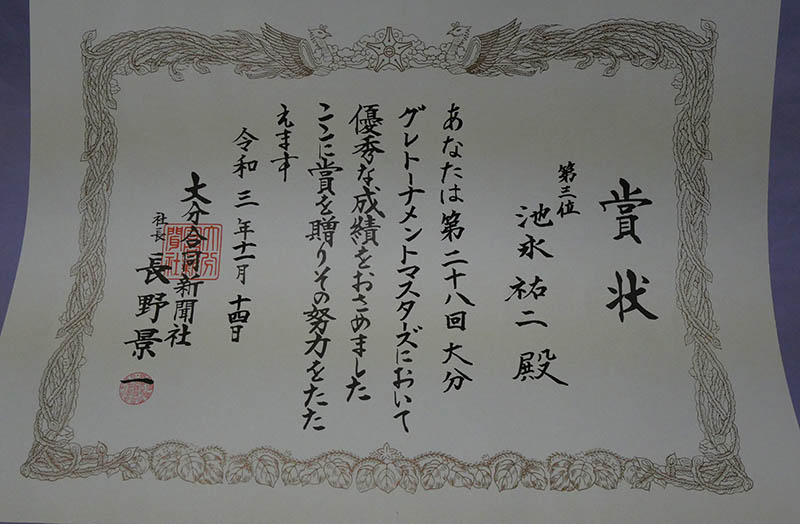 賞状
第三位
池永祐二殿
あなたは第二十八回大分
グレトーナメントマスターズにおいて
優秀な成績をおさめました
ここに賞を贈りその努力をたた
えます
令和三年十一月十四日
大分合同新聞社
社長
長野景一